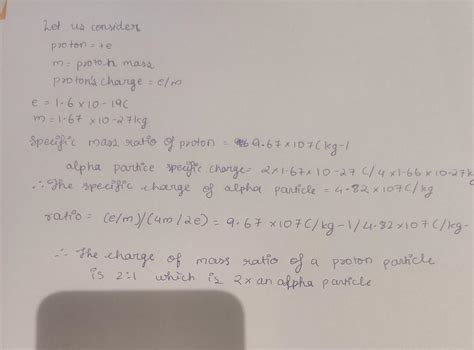 Let us consider
proton = +e
m = proton mass
proton's charge = e/m
e = 1.6 x 10 - 19C
m = 1.67 x 10 - 27 kg
Specific mass ratio of proton = 9.67 x 107 C/kg-1
alpha partice specific charge = 2 x 1.67 x 10 - 27 C/4 x 1.66 x 10 - 27 kg
∴ The specific charge of alpha particle = 4.82 x 107 C/kg
ratio = (e/m)/(4m/2e) = 9.67 x 107 C/kg-1/4.82 x 107 C/kg-
∴ The charge of mass ratio of a proton particle
is 2:1 which is 2x an alpha particle